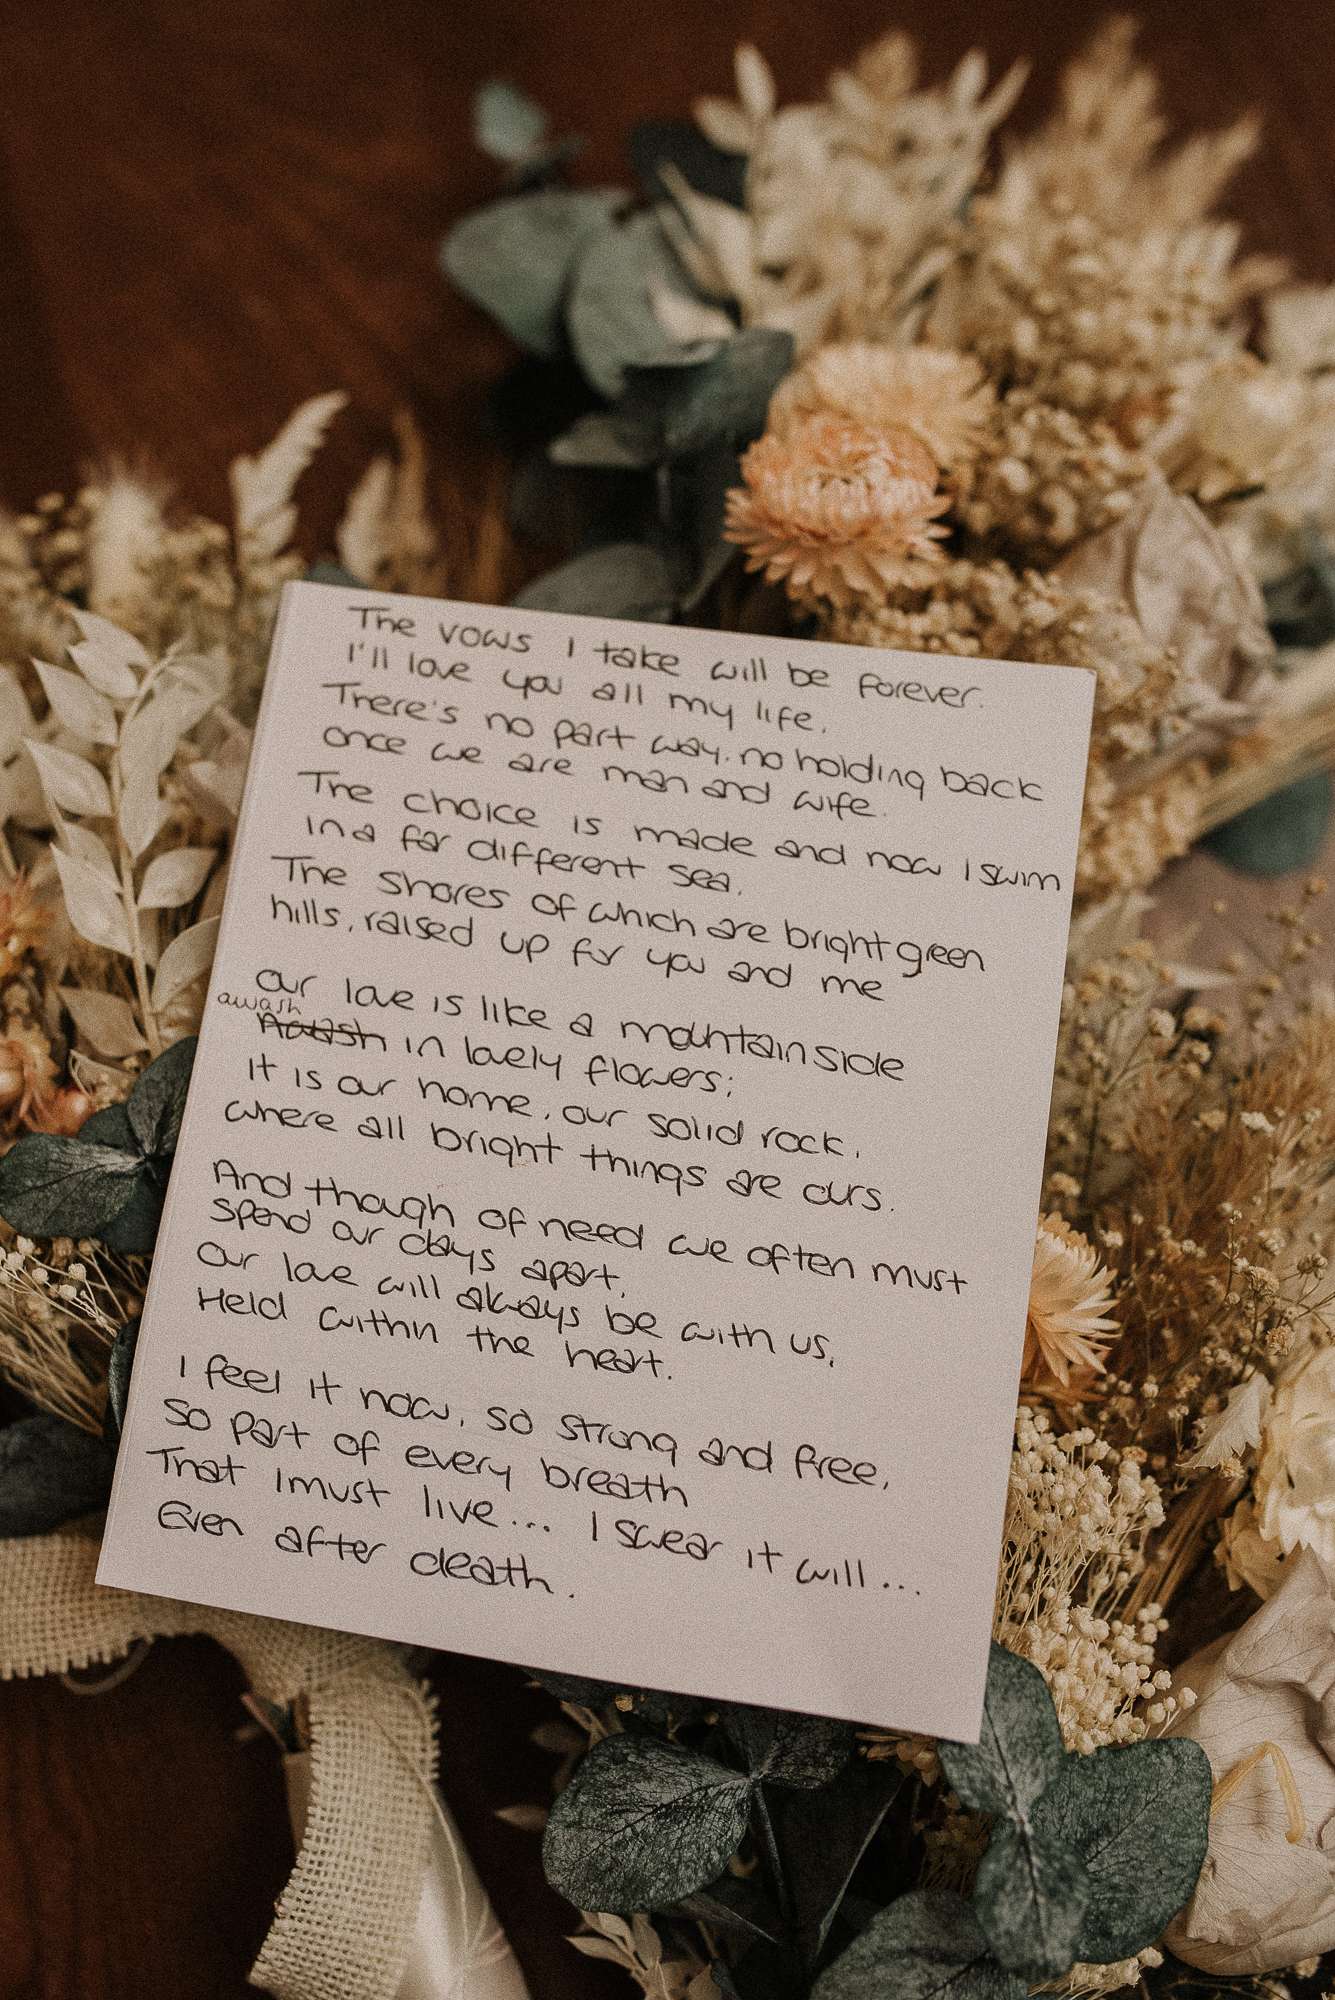 The vows I take will be forever.
I'll love you all my life.
There's no part way, no holding back
once we are man and wife.
The choice is made and now I swim
in a far different sea.
The shores of which are bright green
hills, raised up for you and me
our love is like a mountainside
awash
in lovely flowers;
it is our home, our solid rock,
where all bright things are ours.
And though of need we often must
spend our days apart,
our love will always be with us,
Held within the heart.
I feel it now, so strong and free,
So part of every breath
That I must live... I swear it will...
Even after death.